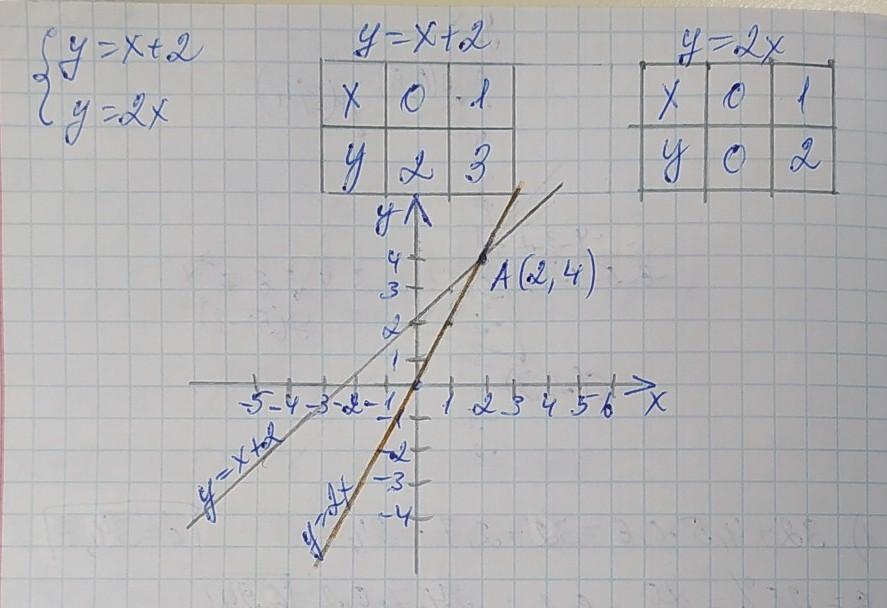 y=x+2
y=2x
y=x+2
x 0 1
y 2 3
y=2x
x 0 1
y 0 2
y
4
3
2
1
A(2,4)
-5 -4 -3 -2 -1 1 2 3 4 5 6 x
-1
-2
-3
-4
y=x+2
y=2x